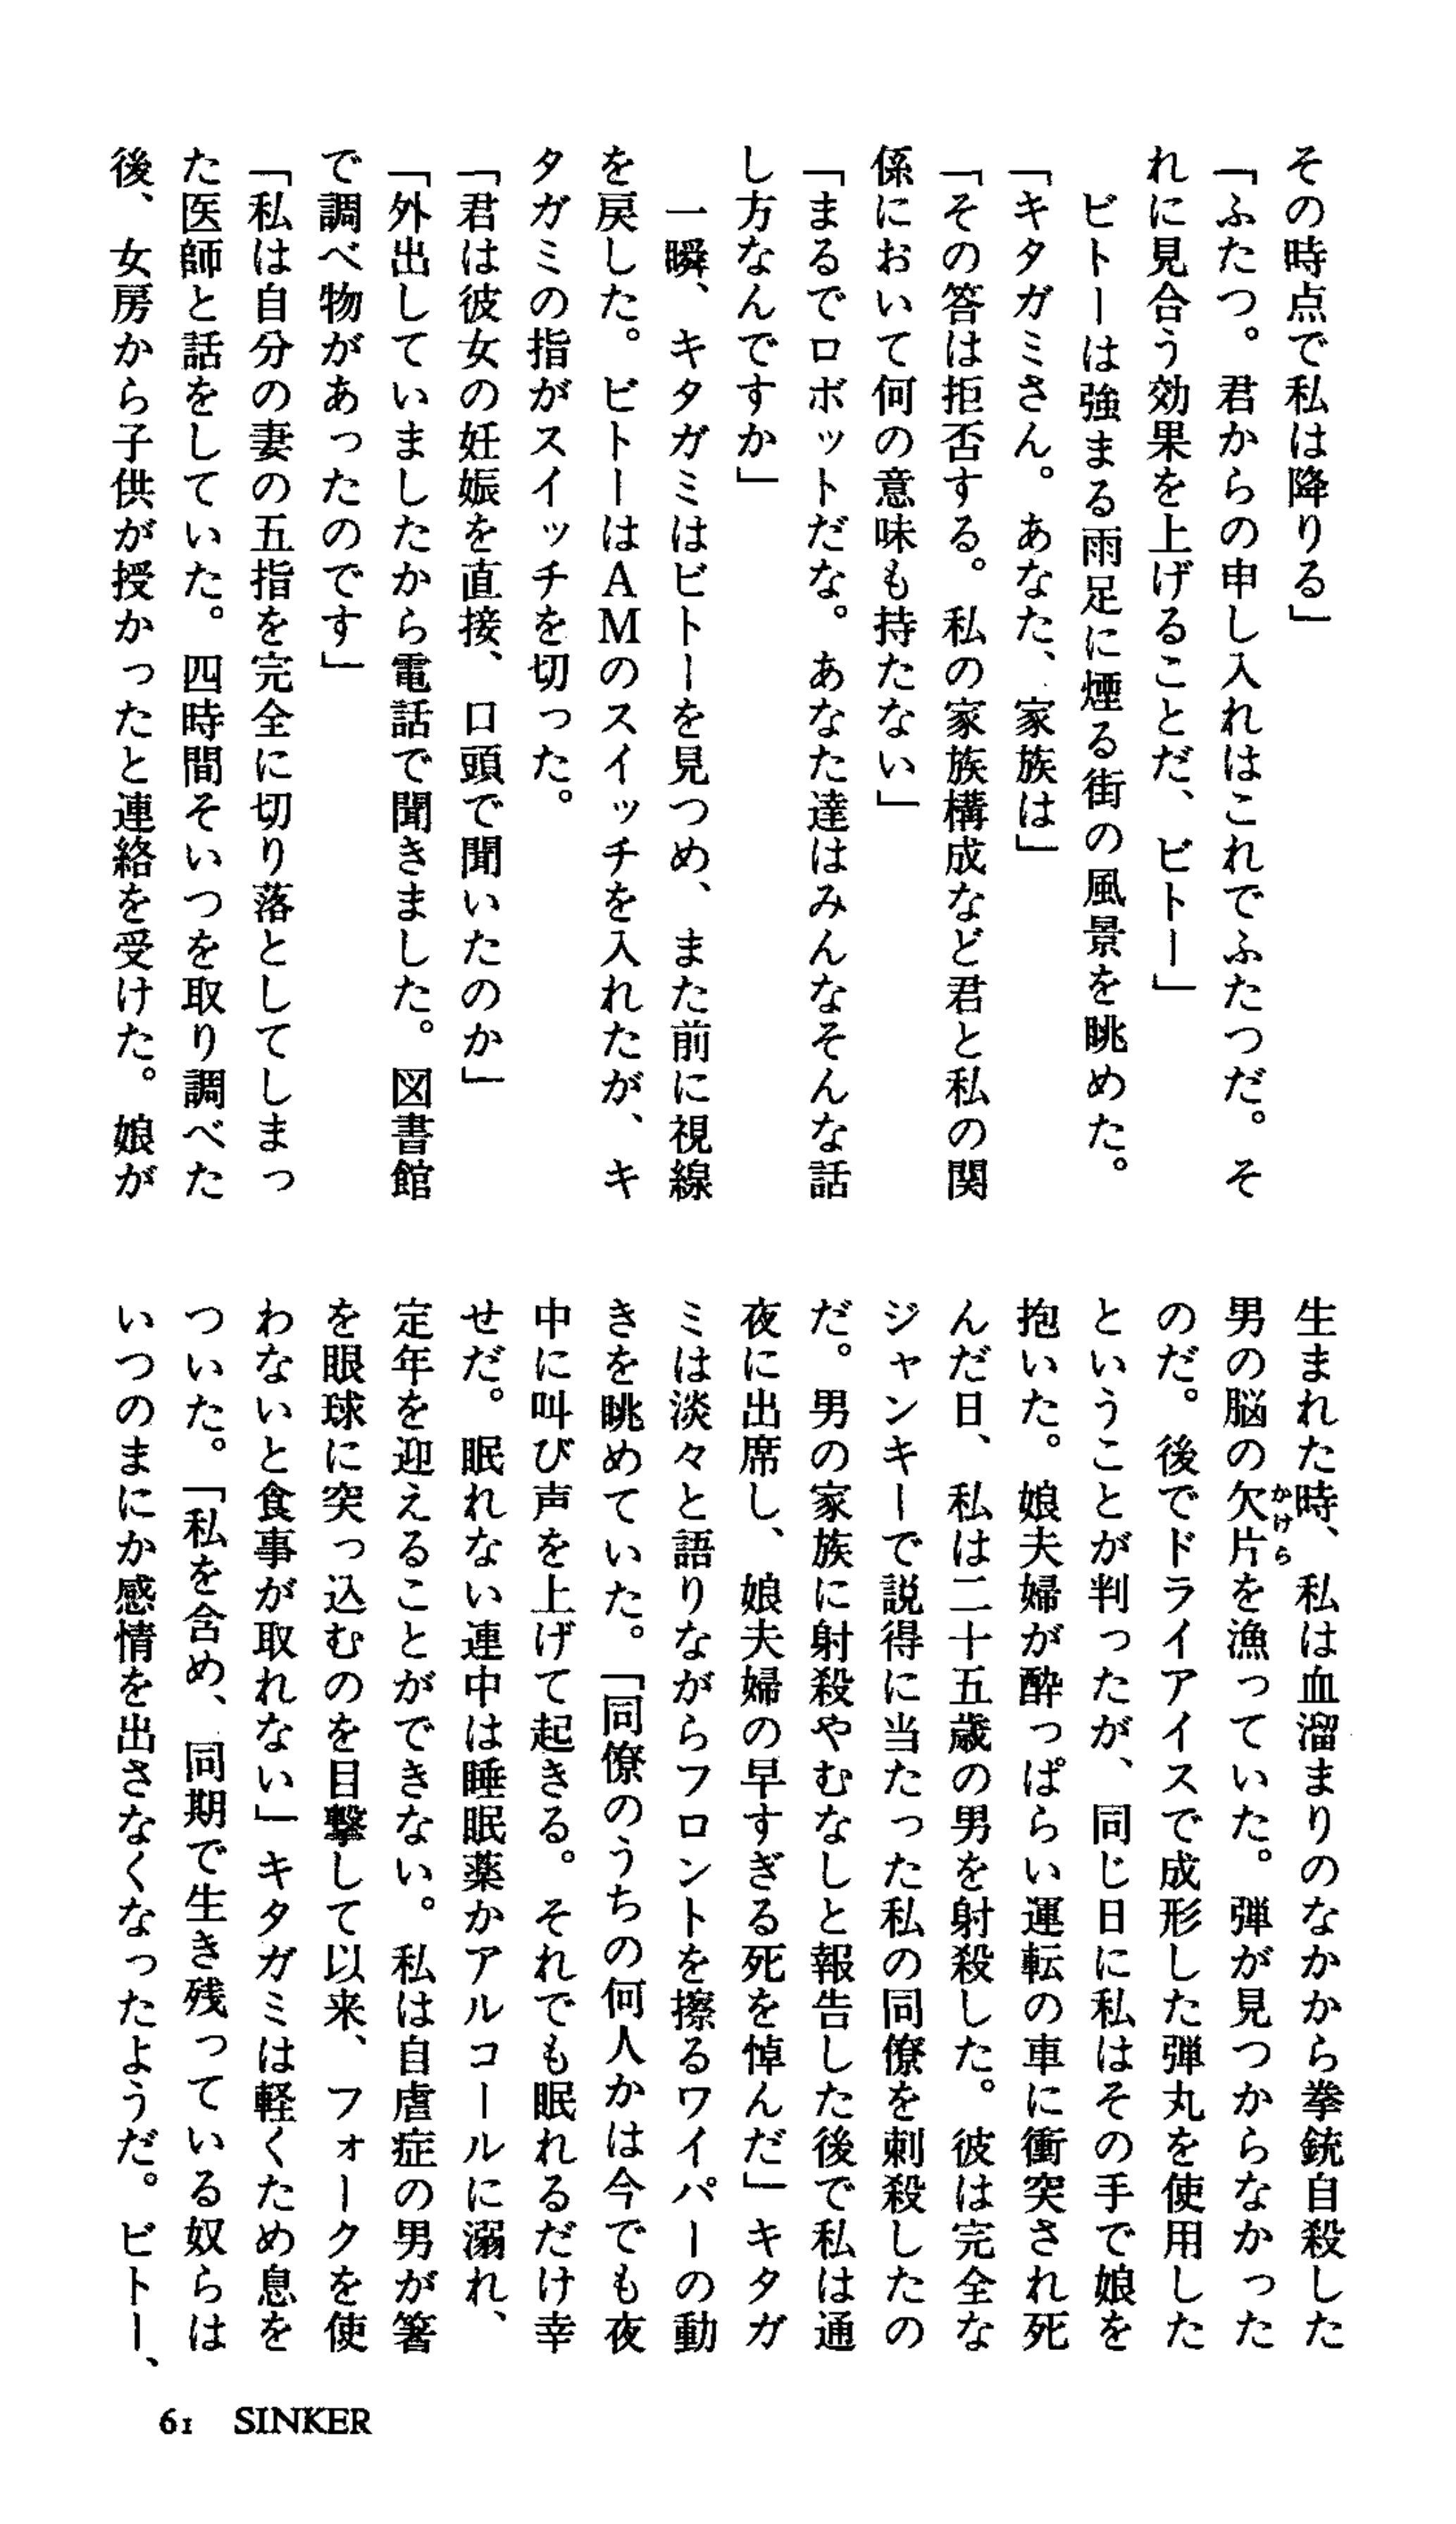 その時点で私は降りる」
「ふたつ。君からの申し入れはこれでふたつだ。そ
れに見合う効果を上げることだ、ビトー」
　ビトーは強まる雨足に煙る街の風景を眺めた。
「キタガミさん。あなた、家族は」
「その答は拒否する。私の家族構成など君と私の関
係において何の意味も持たない」
「まるでロボットだな。あなた達はみんなそんな話
し方なんですか」
　一瞬、キタガミはビトーを見つめ、また前に視線
を戻した。ビトーはＡＭのスイッチを入れたが、キ
タガミの指がスイッチを切った。
「君は彼女の妊娠を直接、口頭で聞いたのか」
「外出していましたから電話で聞きました。図書館
で調べ物があったのです」
「私は自分の妻の五指を完全に切り落としてしまっ
た医師と話をしていた。四時間そいつを取り調べた
後、女房から子供が授かったと連絡を受けた。娘が
生まれた時、私は血溜まりのなかから拳銃自殺した
男の脳の欠片かけらを漁っていた。弾が見つからなかった
のだ。後でドライアイスで成形した弾丸を使用した
ということが判ったが、同じ日に私はその手で娘を
抱いた。娘夫婦が酔っぱらい運転の車に衝突され死
んだ日、私は二十五歳の男を射殺した。彼は完全な
ジャンキーで説得に当たった私の同僚を刺殺したの
だ。男の家族に射殺やむなしと報告した後で私は通
夜に出席し、娘夫婦の早すぎる死を悼んだ」キタガ
ミは淡々と語りながらフロントを擦るワイパーの動
きを眺めていた。「同僚のうちの何人かは今でも夜
中に叫び声を上げて起きる。それでも眠れるだけ幸
せだ。眠れない連中は睡眠薬かアルコールに溺れ、
定年を迎えることができない。私は自虐症の男が箸
を眼球に突っ込むのを目撃して以来、フォークを使
わないと食事が取れない」キタガミは軽くため息を
ついた。「私を含め、同期で生き残っている奴らは
いつのまにか感情を出さなくなったようだ。ビトー、
61 SINKER